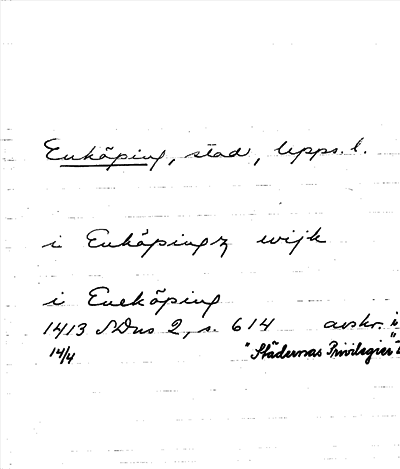 Enköping, stad, Upps. l.
i Enköpingz wijk
i Eneköping
1413 SDns 2, s. 614 avskr. i
14/4 "Städernas Privilegier"